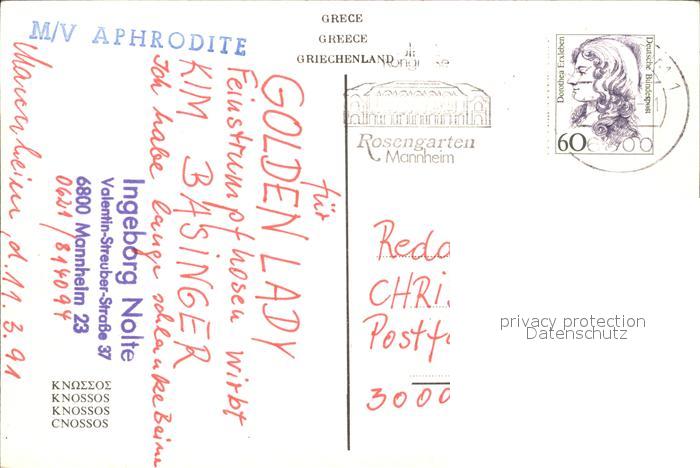 GRECE
GREECE
GRIECHENLAND
M/V APHRODITE
für
GOLDEN LADY
Feinstrumpfhosen wirbt
KIM BASINGER
Ich habe lange schlanke Beine
Ingeborg Nolte
Valentin-Streuber-Straße 37
6800 Mannheim 23
0621/814094
Mannheim, d. 11.3.91
ΚΝΩΣΣΟΣ
KNOSSOS
KNOSSOS
CNOSSOS
Rosengarten
Mannheim
Dorothea Erxleben
Deutsche Bundespost
60
Reda
CHRI
Postf
3000
privacy protection
Datenschutz